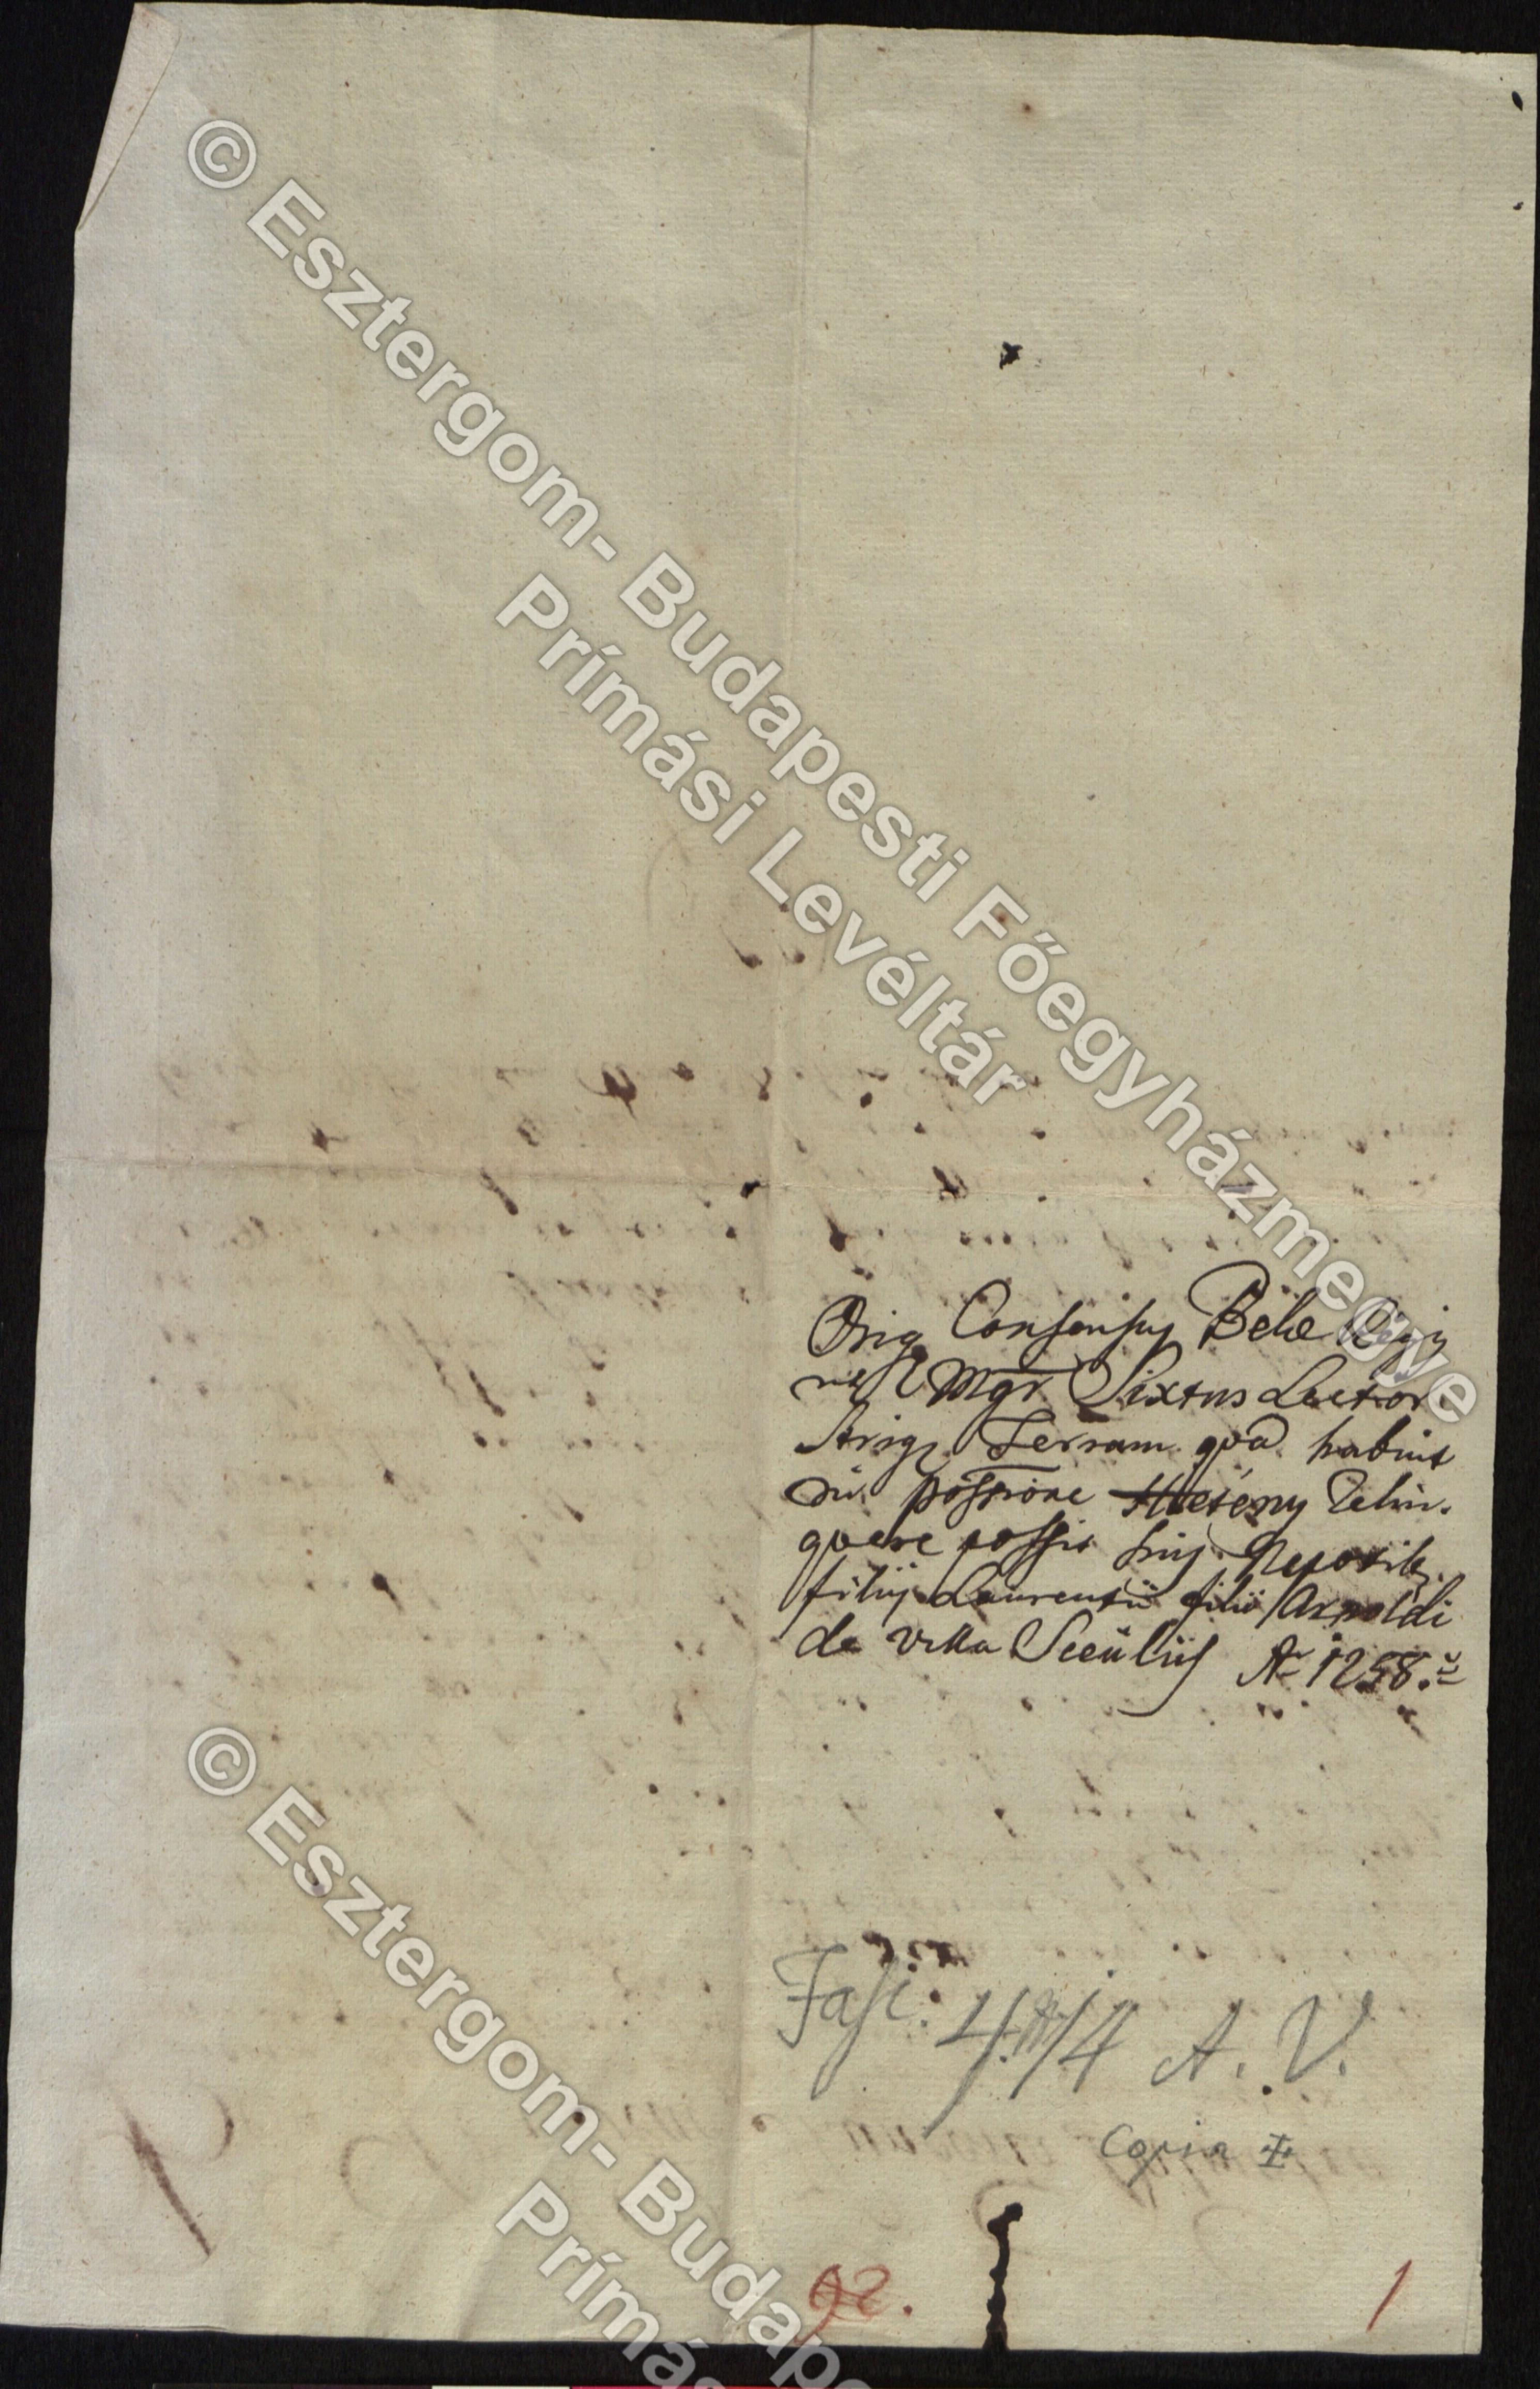 © Esztergom- Budapesti Főegyházmegye
Prímási Levéltár
Orig Consensus Bele Regis
Mgr Sixtus Lector
Strig. Terram qua habuit
in possione Hetény Relin-
quere possit suis Nepotib
filiis Laurentii filii Arnoldi
de villa Sceülüs Ao 1258.
Fasc: 4. /4 A. V.
Copia
© Esztergom- Budap
Prímás
92.
1